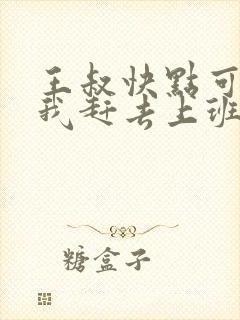 王叔快點可
我赶去上班
糖盒子